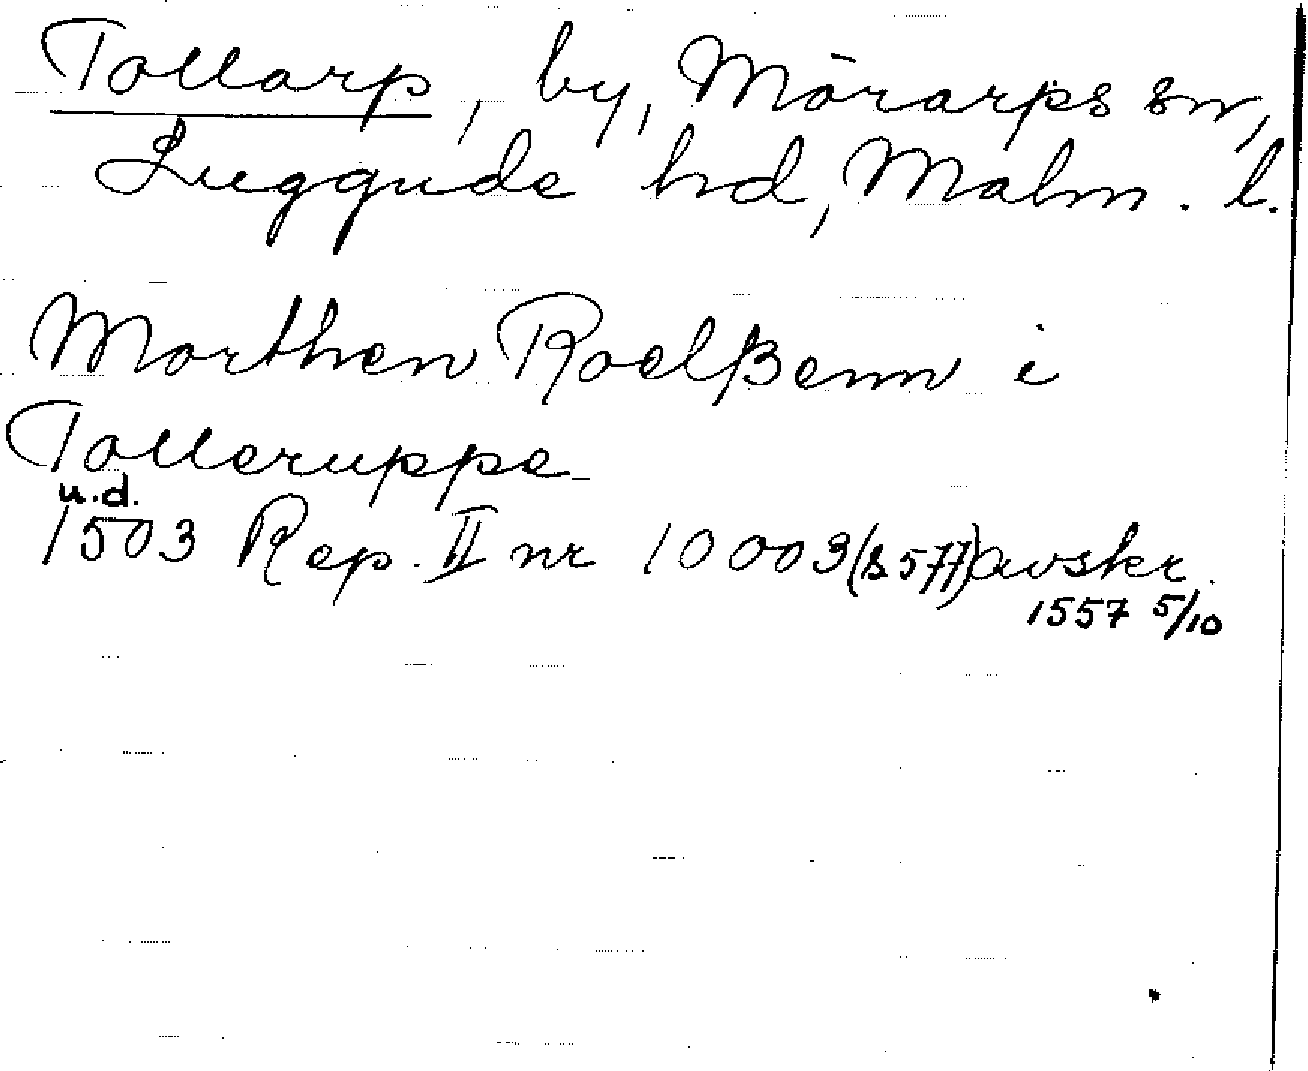 Tollarp, by, Mörarps sn,
Luggude hd, Malm. l.
Morthen Roelßenn i
Tolleruppe
u.d.
1503 Rep. II nr 10003 (s 577) avskr.
1557 5/10